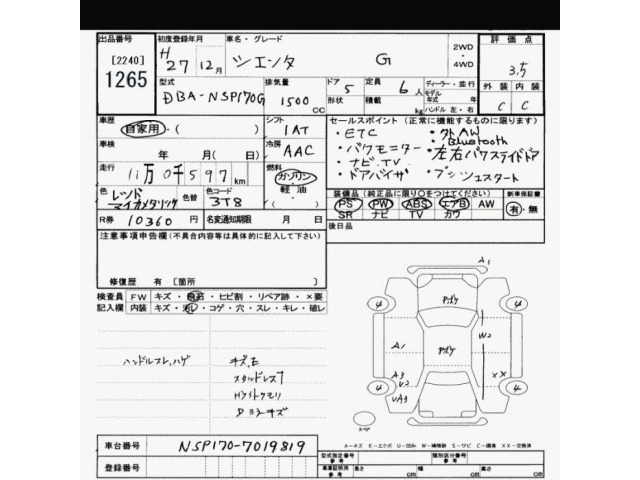 出品番号 初度登録年月 車名・グレード 2WD・4WD 評価点
[2240] 1265 H27 12月 シエンタ G 3.5
型式 排気量 ドア 定員 ディーラー・並行 外装 内装
DBA-NSP170G 1500 CC 5 6人 モデル年式 年
形状 積載 kg ハンドル 左・右 C C
車歴 シフト セールスポイント(正常に機能するものに限ります)
自家用・( ) 1AT ・ETC ・社外AW
車検 年 月 日( ) 冷房 AAC ・バクモニター ・Bluetooth
走行 11万0千597km 燃料 ガソリン・軽油・ ・ナビ.TV ・左右パワースライドドア
・ドアバイザ ・プッシュスタート
色 レッドマイカメタリック 色替 色コード 3T8 装備品(純正品に限り○をつけてください) 新車保証書
R券 10360円 名変通知期限 月 日 PS PW ABS エアB AW 有・無
SR ナビ TV カワ
注意事項申告欄(不具合内容等は具体的に記入して下さい) 後日品
修復歴 有 [箇所 ]
検査員 FW キズ・飛石・ヒビ割・リペア跡・×要
記入欄 内装 キズ・汚レ・コゲ・穴・スレ・キレ・破レ
ハンドルスレ,ハゲ キズ,E
スタッドレス
キズ
A1
アポケ
4 4
A1 アポケ W2
A3 U2 XX
4 UA3 4
スペア
A-キズ E-エクボ U-凹み W-補修跡 S-サビ C-腐食 XX-交換済
車台番号 NSP170-7019819
型式指定番号 参考 類別区分番号 参考
登録番号
車庫証明用 参考 長さ cm 幅 cm 高さ cm